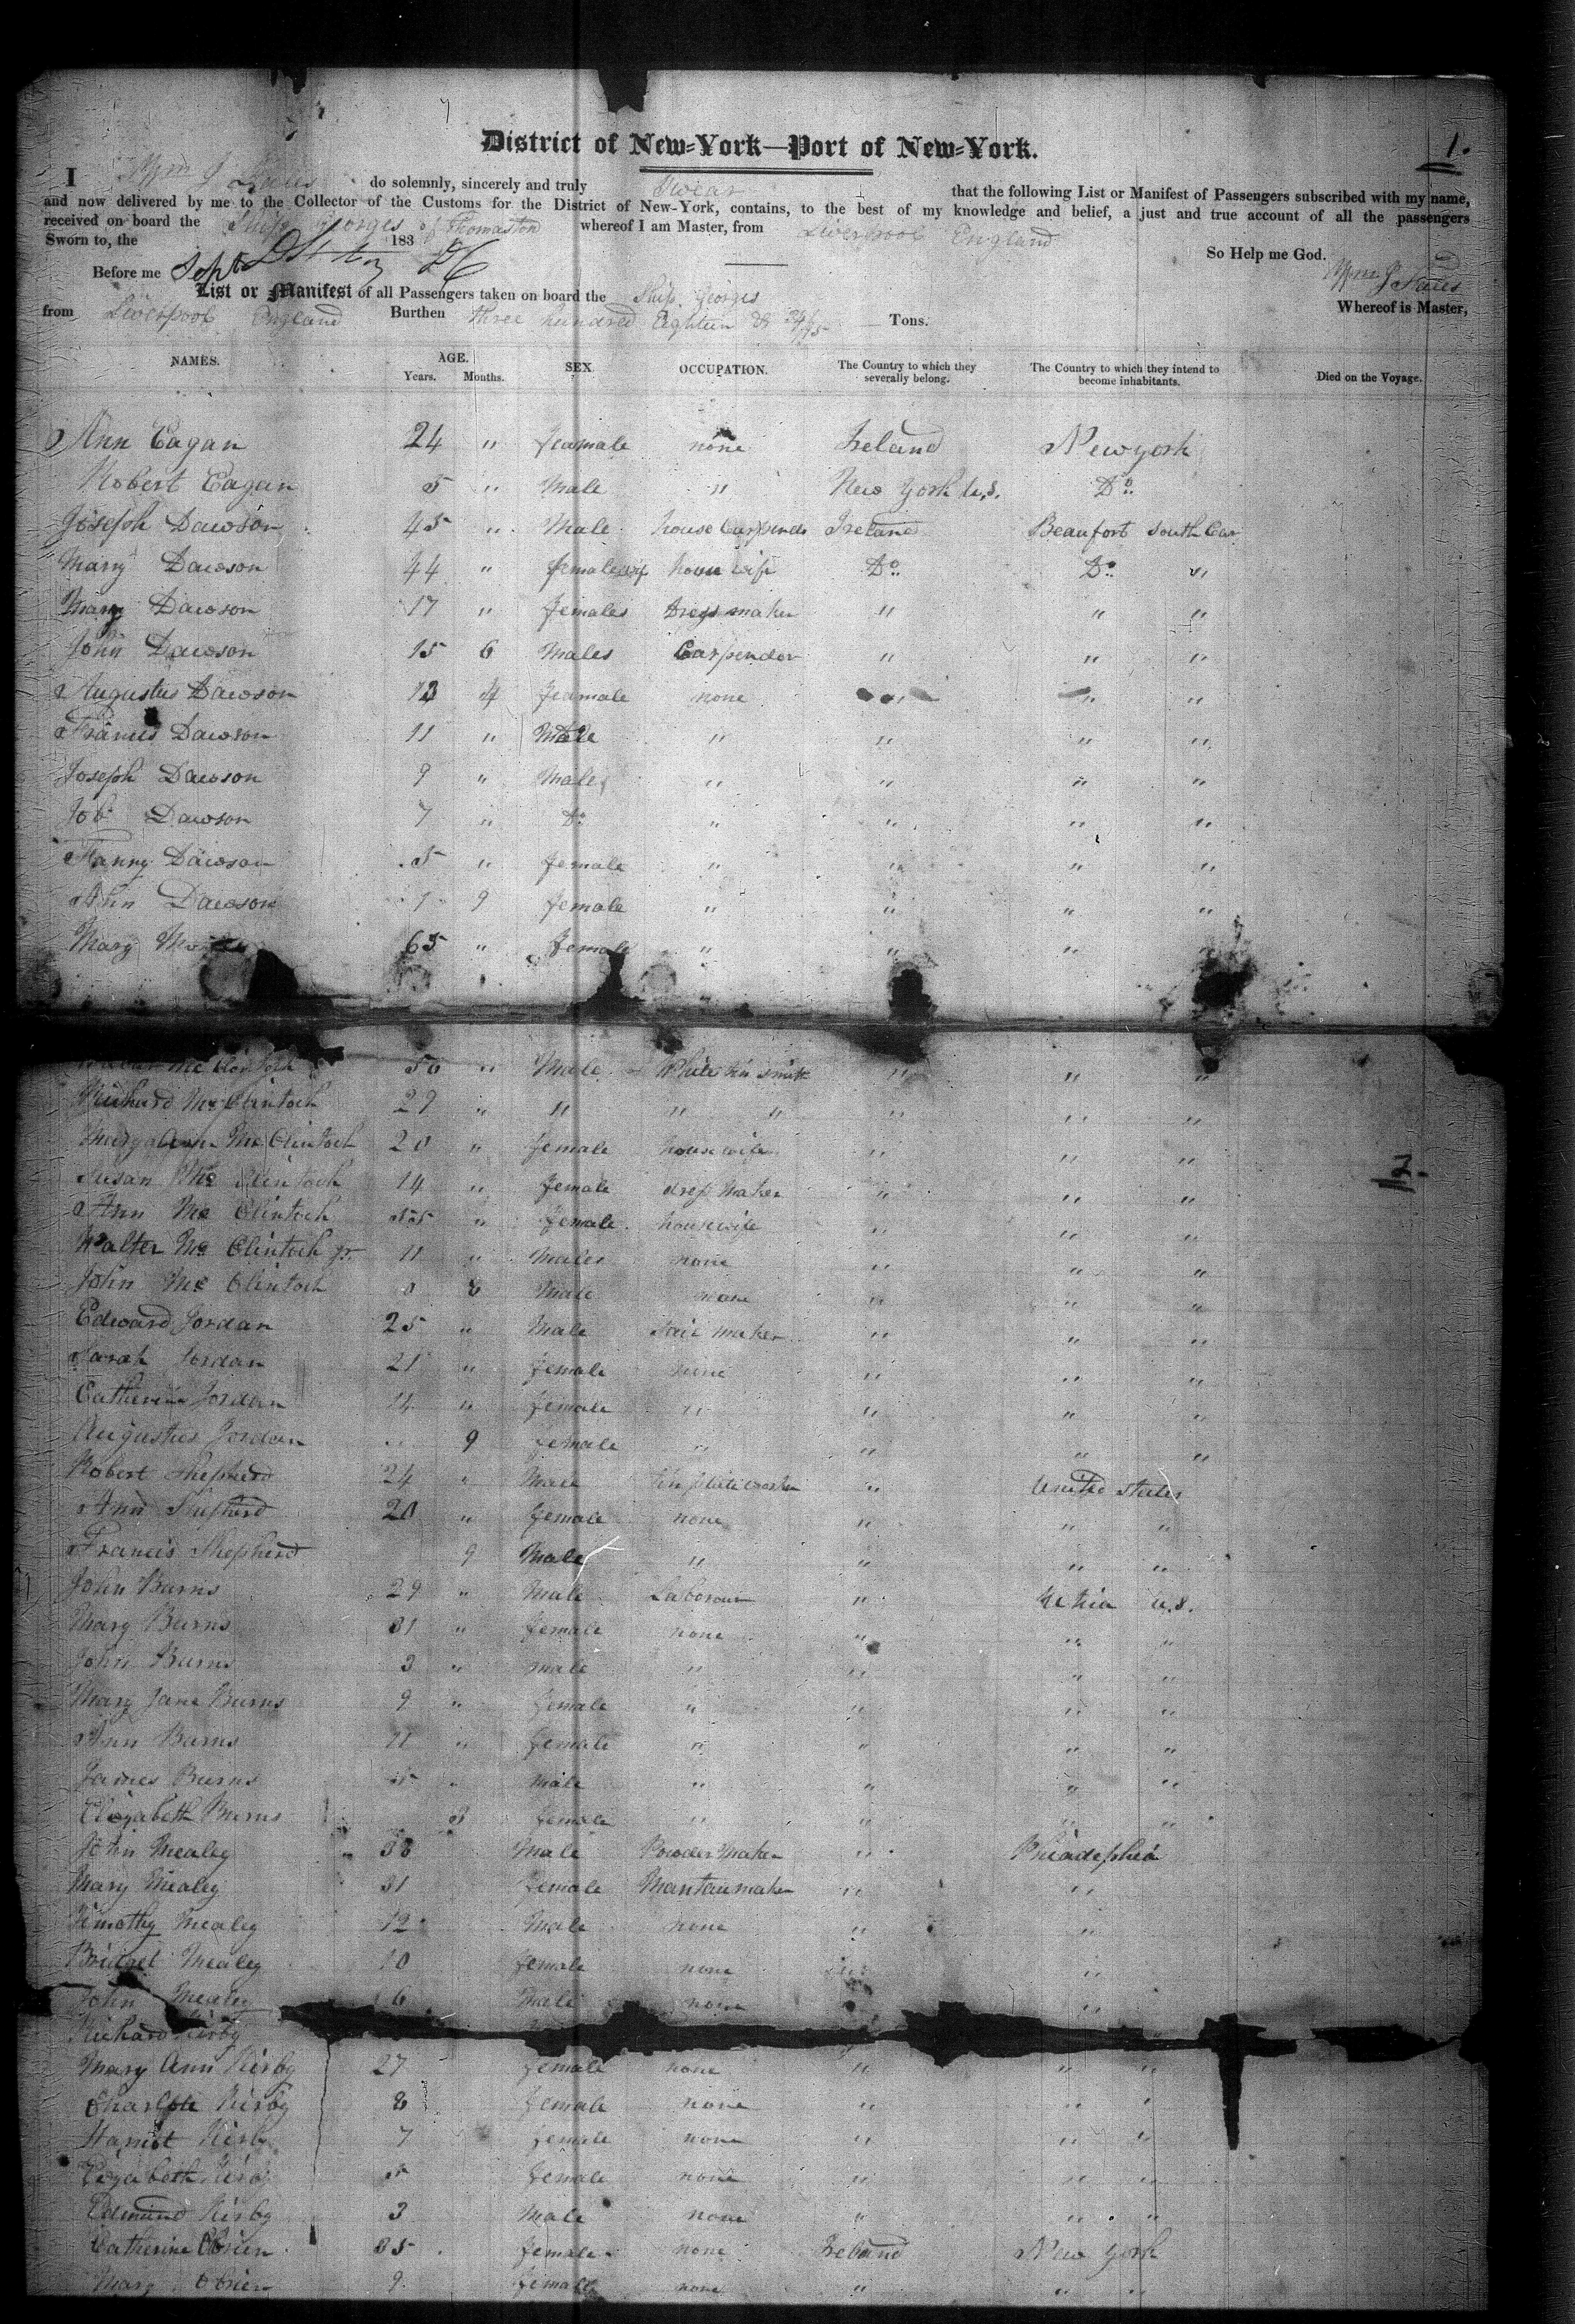 1.
District of New-York—Port of New-York.
I Wm J do solemnly, sincerely and truly Swear that the following List or Manifest of Passengers subscribed with my name,
and now delivered by me to the Collector of the Customs for the District of New-York, contains, to the best of my knowledge and belief, a just and true account of all the passengers
received on board the Ship Georges of Thomaston whereof I am Master, from Liverpool England
Sworn to, the 183 So Help me God.
Before me Sept Wm J
List or Manifest of all Passengers taken on board the Ship Georges Whereof is Master,
from Liverpool England Burthen three hundred Eighteen & /95 Tons.
NAMES. AGE. Years. Months. SEX. OCCUPATION. The Country to which they severally belong. The Country to which they intend to become inhabitants. Died on the Voyage.
Ann Eagan 24 " feamale none Ireland New york
Robert Eagan 5 " Male " New York U.S. Do
Joseph Dawson 45 " Male house Ireland Beaufort South Car
Mary Dawson 44 " female house wife Do Do "
Mary Dawson 17 " females Dress maker " " "
John Dawson 15 6 Males Carpendor " " "
Augustus Dawson 13 4 feamale none " " "
Francis Dawson 11 " Male " " " "
Joseph Dawson 9 " Males " " " "
Job Dawson 7 " Do " " " "
Fanny Dawson 5 " female " " " "
Ann Dawson 1 9 female " " " "
Mary 65 " female " " " "
Mc Clintoch 50 " Male White smith " " "
Richard Mc Clintoch 29 " " " " " " "
Mary Ann Mc Clintoch 20 " female housewife " " "
Susan Mc Clintoch 14 " female dress Maker " " "
Ann Mc Clintoch 55 " female housewife " " "
Walter Mc Clintoch jr. 11 " Males none " " "
John Mc Clintoch 0 8 Male none " " "
Edward Jordan 25 " Male Sail maker " " "
Sarah Jordan 21 " female none " " "
Catherine Jordan 14 " female " " " "
Augustus Jordan 9 female " " " "
Robert Shepherd 24 " Male " United States
Ann Shepherd 20 " female none " " "
Francis Shepherd 9 Male " " " "
John Burns 29 " Male Labourer " Utica U.S.
Mary Burns 31 " female none " " "
John Burns 3 " male " " " "
Mary Jane Burns 9 " female " " " "
Ann Burns 11 " female " " " "
James Burns 5 " Male " " " "
Elizabeth Burns 3 female " " " "
John Mealey 38 Male Powder Maker " Philadelphia
Mary Mealey 31 female Mantau maker " "
Timothy Mealey 12 Male none " "
Bridget Mealey 10 female none " "
John Mealey 6 Male none "
Richard Kirby
Mary Ann Kirby 27 female none " " "
Charlotte Kirby 8 female none " " "
Harriot Kirby 7 female none " " "
Elizabeth Kirby 5 female none " " "
Edmund Kirby 3 Male none " " "
Catherine OBrien 35 female none Ireland New York
Mary OBrien 9 female none " " "